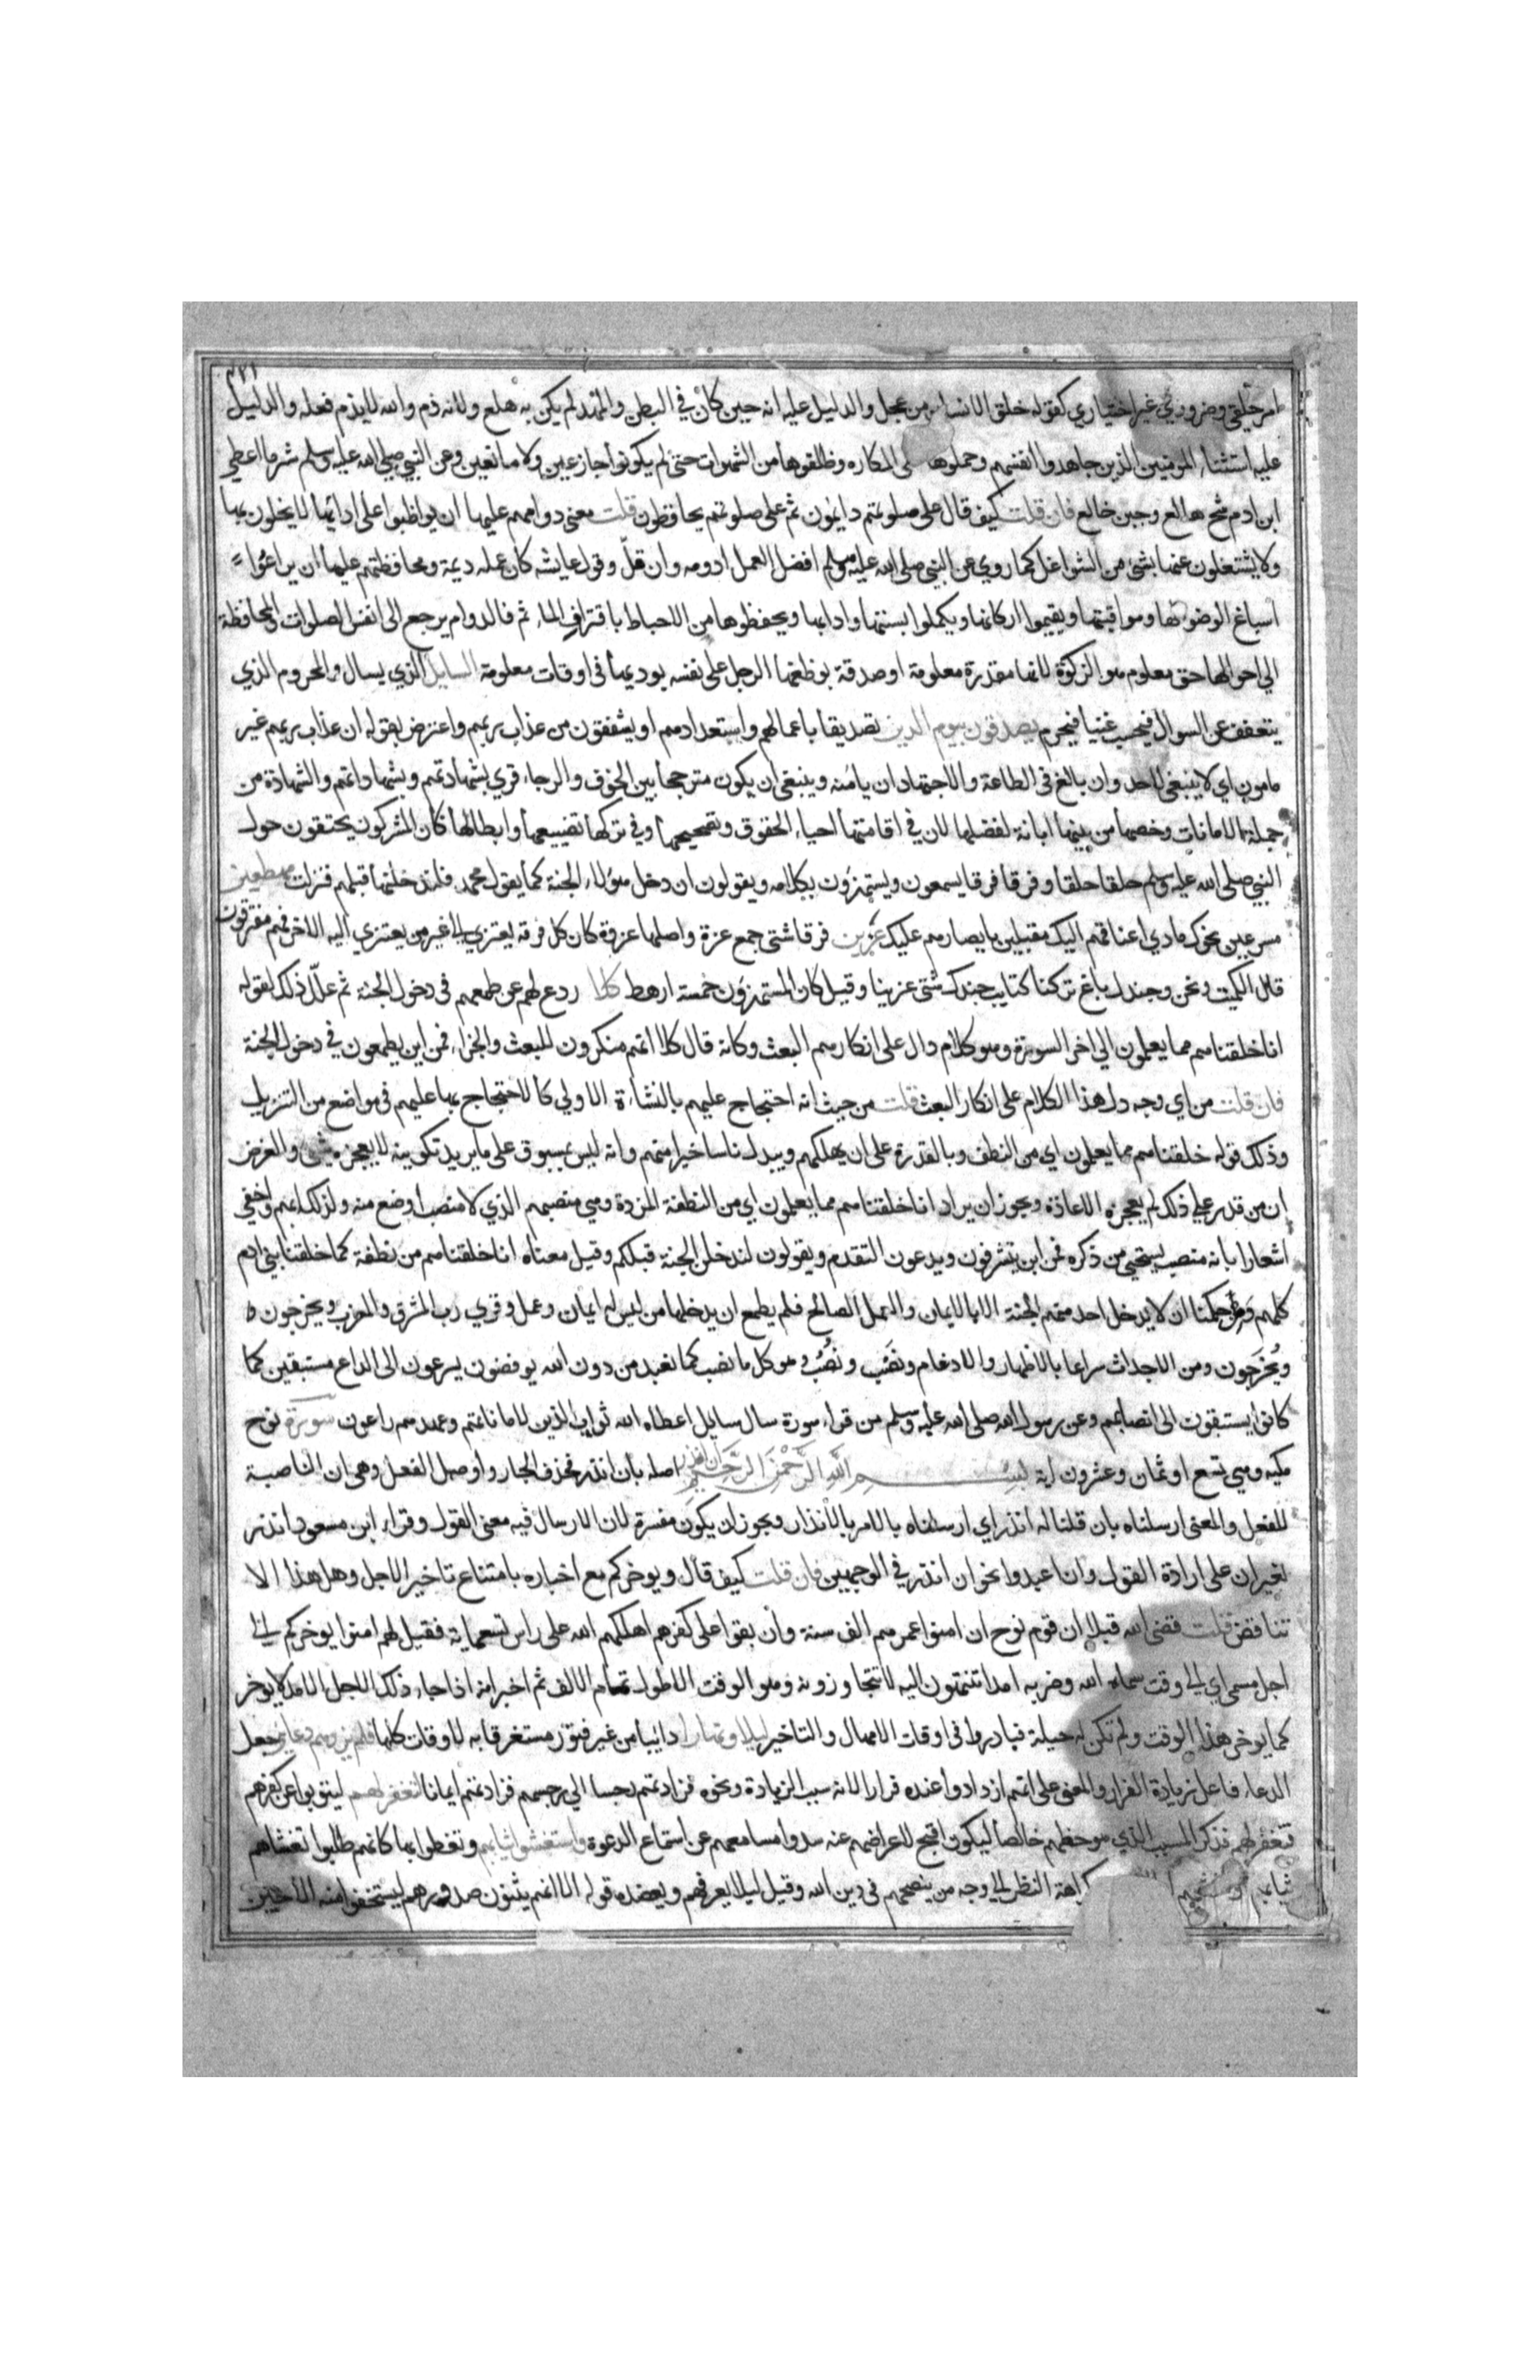 ٣٢١
امر خلقي وضروري غير اختياري كقوله خلق الانسان من عجل والدليل عليه انه حين كان في البطن والمهد لم يكن به هلع ولانه ذم والله لا يذم فعله والدليل
عليه استثناء المومنين الذين جاهدوا انفسهم وحملوها على المكاره وظلفوها من الشهوات حتى لم يكونوا جازعين ولا مانعين وعن النبي صلى الله عليه وسلم شر ما اعطي
ابن ادم شح هالع وجبن خالع فان قلت كيف قال على صلوتهم دايمون ثم على صلوتهم يحافظون قلت معنى دوامهم عليها ان يواظبوا على ادايها لا يخلون بها
ولا يشتغلون عنها بشئ من الشواغل كما روي عن النبي صلى الله عليه وسلم افضل العمل ادومه وان قلّ وقول عايشه كان عمله ديمة ومحافظتهم عليها ان يراعوا
اسباغ الوضو لها ومواقيتها ويقيموا اركانها ويكملوا بسننها وادابها ويحفظوها من الاحباط باقتراف الماثم فالدوام يرجع الى انفس الصلوات والمحافظة
الي احوالها حق معلوم هو الزكوة لانها مقدرة معلومة او صدقة يوظفها الرجل على نفسه يوديها في اوقات معلومة السايل الذي يسال والمحروم الذي
يتعفف عن السوال فيحسب غنيا فيحرم يصدقون بيوم الدين تصديقا باعمالهم واستعدادهم له ويشفقون من عذاب ربهم واعترض بقوله ان عذاب ربهم غير
مامون اي لا ينبغي لاحد وان بالغ في الطاعة والاجتهاد ان يامنه وينبغي ان يكون مترجحا بين الخوف والرجاء قري بشهادتهم وبشهاداتهم والشهادة من
جملة الامانات وخصها من بينها ابانة لفضلها لان في اقامتها احياء الحقوق وتصحيحها وفي تركها تضييعها وابطالها كان المشركون يحتفون حول
النبي صلى الله عليه وسلم حلقا حلقا وفرقا فرقا يسمعون ويستهزؤن بكلامه ويقولون ان دخل هؤلاء الجنة كما يقول محمد فلندخلنها قبلهم فنزلت مهطعين
مسرعين نحوك مادي اعناقهم اليك مقبلين بابصارهم عليك عزين فرقا شتى جمع عزة واصلها عزوة كان كل فرقه تعتزي الى غير من تعتزي اليه الاخرى فهم مفترقون
قال الكميت ونحن وجندل باغ تركنا كتايب جندل شتى عزينا وقيل كان المستهزؤن خمسة ارهط كلا ردع لهم عن طمعهم في دخول الجنة ثم علّل ذلك بقوله
انا خلقناهم مما يعلمون الي اخر السورة وهو كلام دال على انكارهم البعث وكانه قال كلا انهم منكرون للبعث والجزاء فمن اين يطمعون في دخول الجنة
فان قلت من اي وجه دل هذا الكلام على انكار البعث قلت من حيث انه احتجاج عليهم بالنشاءة الاولي كالاحتجاج بها عليهم في مواضع من التنزيل
وذلك قوله خلقناهم مما يعلمون اي من النطف وبالقدرة على ان يهلكهم ويبدل ناسا خيرا منهم وانه ليس بمسبوق على ما يريد تكوينه لا يعجزه شئ والغرض
ان من قدر علي ذلك لم يعجزه الاعادة ويجوز ان يراد انا خلقناهم مما يعلمون اي من النطفة المذرة وهي منصبهم الذي لا منصب اوضع منه ولذلك ابهم واخفي
اشعارا بانه منصب يستحيي من ذكره فمن اين يتشرفون ويدعون التقدم ويقولون لندخلن الجنة قبلكم وقيل معناه انا خلقناهم من نطفة كما خلقنا بني ادم
كلهم ومن حكمنا ان لا يدخل احد منهم الجنة الا بالايمان والعمل الصالح فلم يطمع ان يدخلها من ليس له ايمان وعمل وقري رب المشرق والمغرب ويخرجون
ويُخرَجون ومن الاجداث سراعا بالاظهار والادغام ونَصْب ونُصُب وهو كل ما نصب كما تعبد من دون الله يوفضون يسرعون الى الداعي مستبقين كما
كانوا يستبقون الى انصابهم وعن رسول الله صلى الله عليه وسلم من قراء سورة سال سايل اعطاه الله ثواب الذين لاماناتهم وعهدهم راعون سورة نوح
مكيه وهي تسع او ثمان وعشرون اية بسم الله الرحمن الرحيم ان انذر اصله بان انذر فحذف الجار واوصل الفعل وهي ان الناصبة
للفعل والمعنى ارسلناه بان قلنا له انذر اي ارسلناه بالامر بالانذار ويجوز ان يكون مفسرة لان الارسال فيه معنى القول وقراء ابن مسعود انذر
بغير ان على ارادة القول وان اعبدوا نحو ان انذر في الوجهين فان قلت كيف قال ويوخركم مع اخباره بامتناع تاخير الاجل وهل هذا الا
تناقض قلت قضى الله مثلا ان قوم نوح ان امنوا عمرهم الف سنة وان بقوا على كفرهم اهلكهم الله على راس تسعماية فقيل لهم امنوا يوخركم الى
اجل مسمى اي الى وقت سماه الله وضربه امدا تنتهون اليه لا تتجاوزونه وهو الوقت الاطول تمام الالف ثم اخبر انه اذا جاء ذلك الاجل الامد لا يوخر
كما يوخر هذا الوقت ولم تكن له حيلة فبادروا في اوقات الامهال والتاخير ليلا ونهارا دايبا من غير فتور مستغرقا به الاوقات كلها فلم يزدهم دعايي جعل
الدعاء فاعل زيادة الفرار والمعنى على انهم ازدادوا عنده فرارا لانه سبب الزيادة ونحوه فزادتهم رجسا الي رجسهم فزادتهم ايمانا لتغفر لهم ليتوبوا عن كفرهم
فتغفر لهم فذكر المسبب الذي هو حظهم خالصا ليكون اقبح لاعراضهم عنه سدوا مسامعهم عن استماع الدعوة واستغشوا ثيابهم وتغطوا بها كانهم طلبوا ان تغشاهم
ثيابهم كراهة النظر الى وجه من ينصحهم في دين الله وقيل ليلا يعرفهم ويعضده قوله الا انهم يثنون صدورهم ليستخفوا منه الا حين